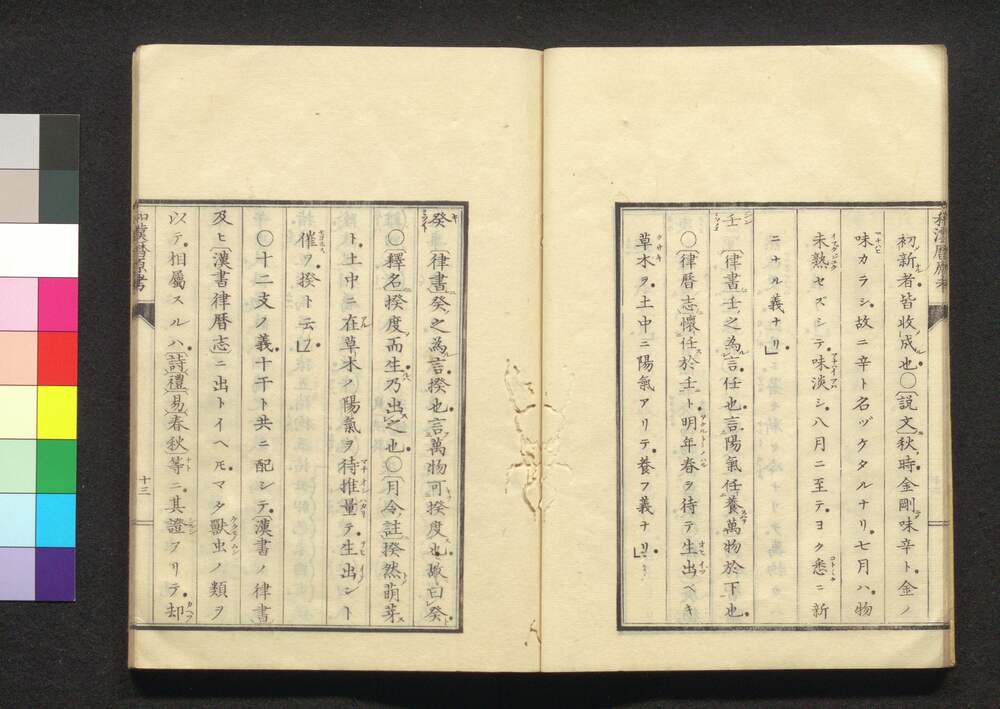 初新者皆收成也○〔説文〕秋時金剛味辛ト金ノ
味カラシ故ニ辛ト名ヅケタルナリ七月ハ物
未熟セズシテ味淡シ八月ニ至テヨク悉ニ新
ニナル義ナリ」
壬〔律書〕壬之為言任也言陽氣任養萬物於下也
○〔律暦志〕懷任於壬ト明年春ヲ待テ生出ベキ
草木ヲ土中ニ陽氣アリテ養フ義ナリ」
癸〔律書〕癸之為言揆也言萬物可揆度也故曰癸
○〔釋名〕揆度而生乃出之也○〔月令註〕揆然萌芽
ト土中ニ在草木ノ陽氣ヲ待推量テ生出ント
催ヲ揆ト云」
○十二支ノ義十干ト共ニ配シテ〔漢書ノ律書〕
及ヒ〔漢書律暦志〕ニ出トイヘ𪜈マタ獸虫ノ類ヲ
以テ相屬スルハ〔詩禮易春秋〕等ニ其證アリテ却
和漢暦原考
十三